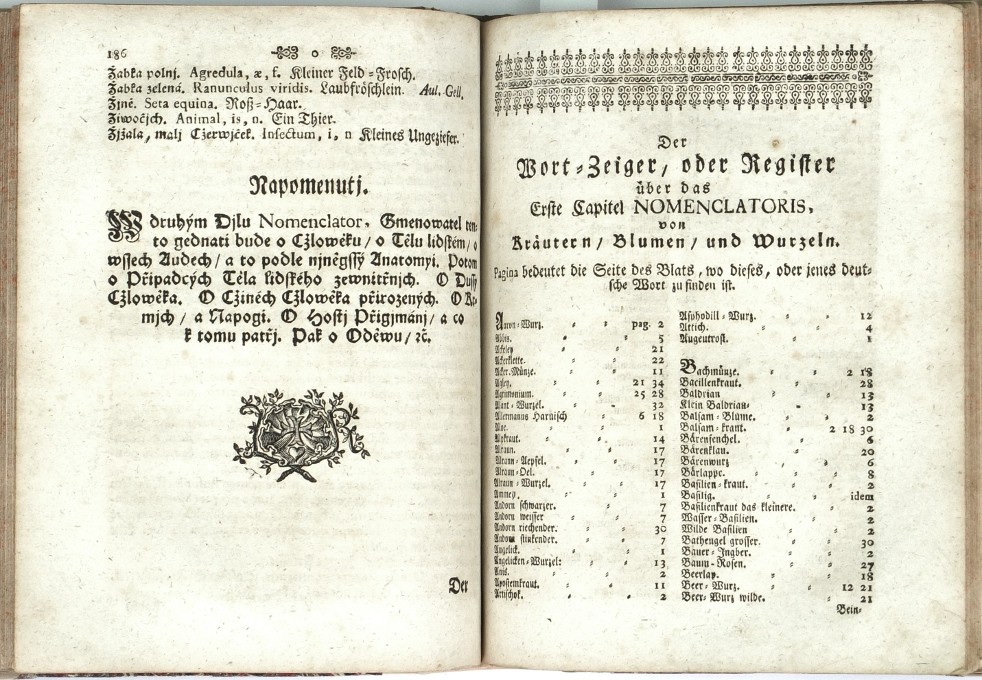 186
Žabka polnj. Agredula, æ, f. Kleiner Feld-Frosch.
Žabka zelená. Ranunculus viridis. Laubfröschlein. Aul. Gell.
Žjně. Seta equina. Roß-Haar.
Žiwočjch. Animal, is, n. Ein Thier.
Žjžala, malj Cžerwjček. Insectum, i, n Kleines Ungeziefer.
Napomenutj.
W druhým Djlu Nomenclator, Gmenowatel ten-
to gednati bude o Cžlowěku/ o Tělu lidském/ o
wssech Audech/ a to podle njněgssý Anatomyi. Potom
o Případcých Těla lidského zewnitřnjch. O Dussy
Cžlowěka. O Cžinéch Cžlowěka přirozených. O Kr-
mjch/ a Nápogi. O Hostj Přigjmánj/ a co
k tomu patřj. Pak o Oděwu/ ꝛč.
Der
Der
Wort-Zeiger, oder Register
über das
Erste Capitel NOMENCLATORIS,
von
Kräutern/ Blumen/ und Wurzeln.
Pagina bedeutet die Seite des Blats, wo dieses, oder jenes deut-
sche Wort zu finden ist.
Aaron-Wurz. pag. 2
5
Ackeley 21
Ackerklette. 22
Acker-Münze. 11
21 34
Agrimonium. 25 28
Alant-Wurzel. 32
Allermanns Harnisch 6 18
Aloe. 1
Alpkraut. 14
Alraun. 17
Alraun-Aepfel. 17
Alraun-Oel. 17
Alraun-Wurzel. 17
Ammey. 1
Andorn schwarzer. 7
Andorn weisser 7
Andorn riechender. 30
Andorn stinkender. 7
Angelick. 1
Angelicken-Wurzel: 13
Anis. 2
Apostemkraut. 11
Artischok. 2
Asphodill-Wurz. 12
Attich. 4
Augentrost. 1
Bachmünze. 2 18
Bacillenkraut. 28
Baldrian 13
Klein Baldrian 13
Balsam-Blume. 2
Balsam-kraut. 2 18 30
Bärenfenchel. 6
Bärenklau. 20
Bärenwurz 6
Bärlappe. 8
Basilien-kraut. 2
Basilig. idem
Basilienkraut das kleinere. 2
Wasser-Basilien. 2
Wilde Basilien 2
Bathengel grosser. 30
Bauer-Ingber. 2
Baum-Rosen. 27
Beerlap. 18
Beer-Wurz. 12 21
Beer-Wurz wilde. 21
Bein-